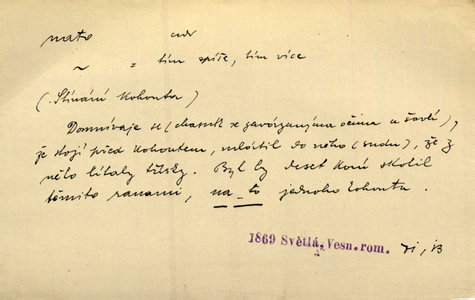 nato adv
~ = tím spíše, tím více
(Stínání kohouta)
Domnívaje se (chasník se zavázanýma očima a šavlí),
že stojí před kohoutem, mlátil do něho (sudu), že z
něho lítaly třísky. Byl by deset koní skolil
těmito ranami, na_to jednoho kohouta.
1869 Světlá, Vesn. rom. 71, 13